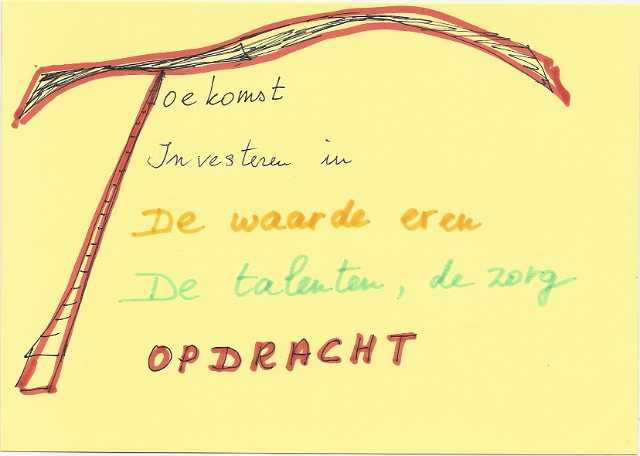 Toekomst
Investeren in
De waarde eren
De talenten, de zorg
OPDRACHT